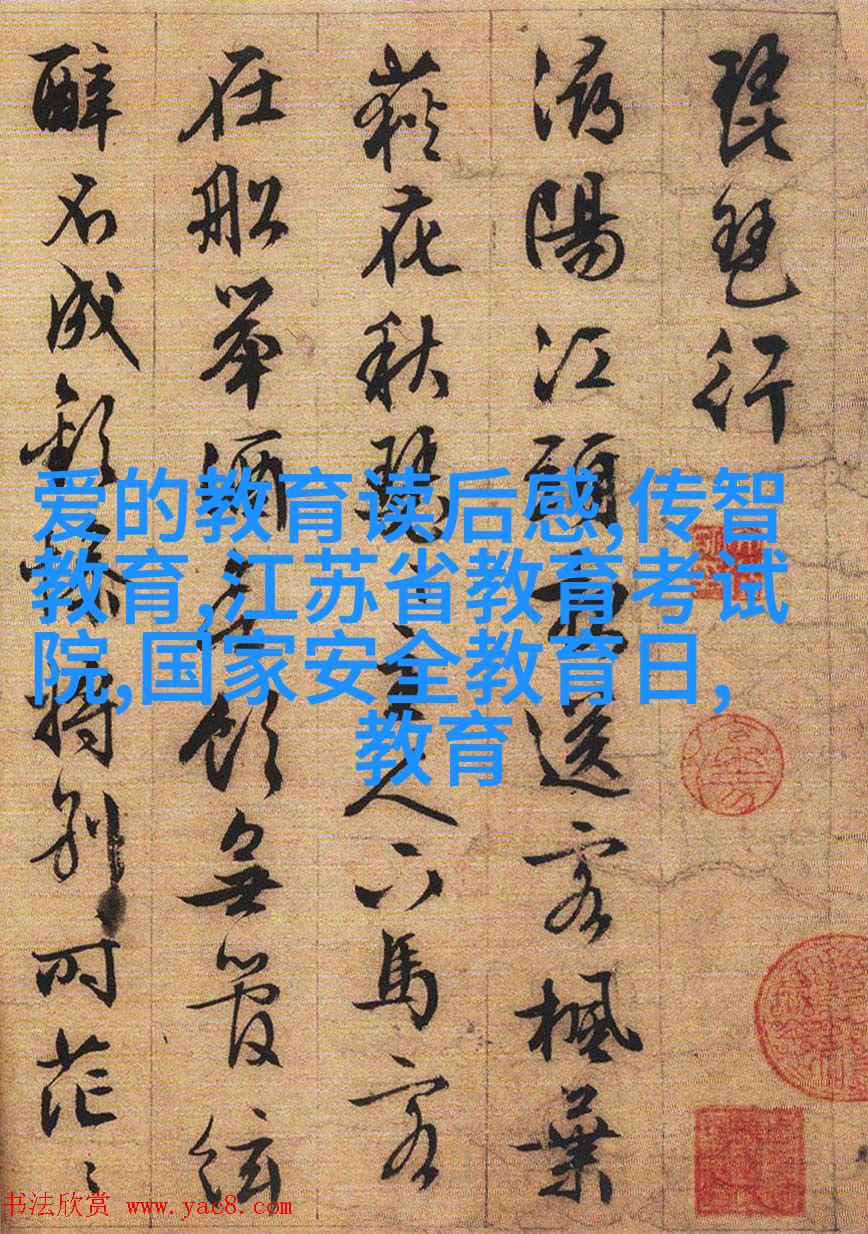 琵琶行
潯陽江頭夜送客楓葉
荻花秋瑟〻主人下馬客
在船舉酒欲飲無管絃
醉不成歡慘將別時茫〻
爱的教育读后感,传智
教育,江苏省教育考试
院,国家安全教育日,
教育
书法欣赏 www.yac8.com